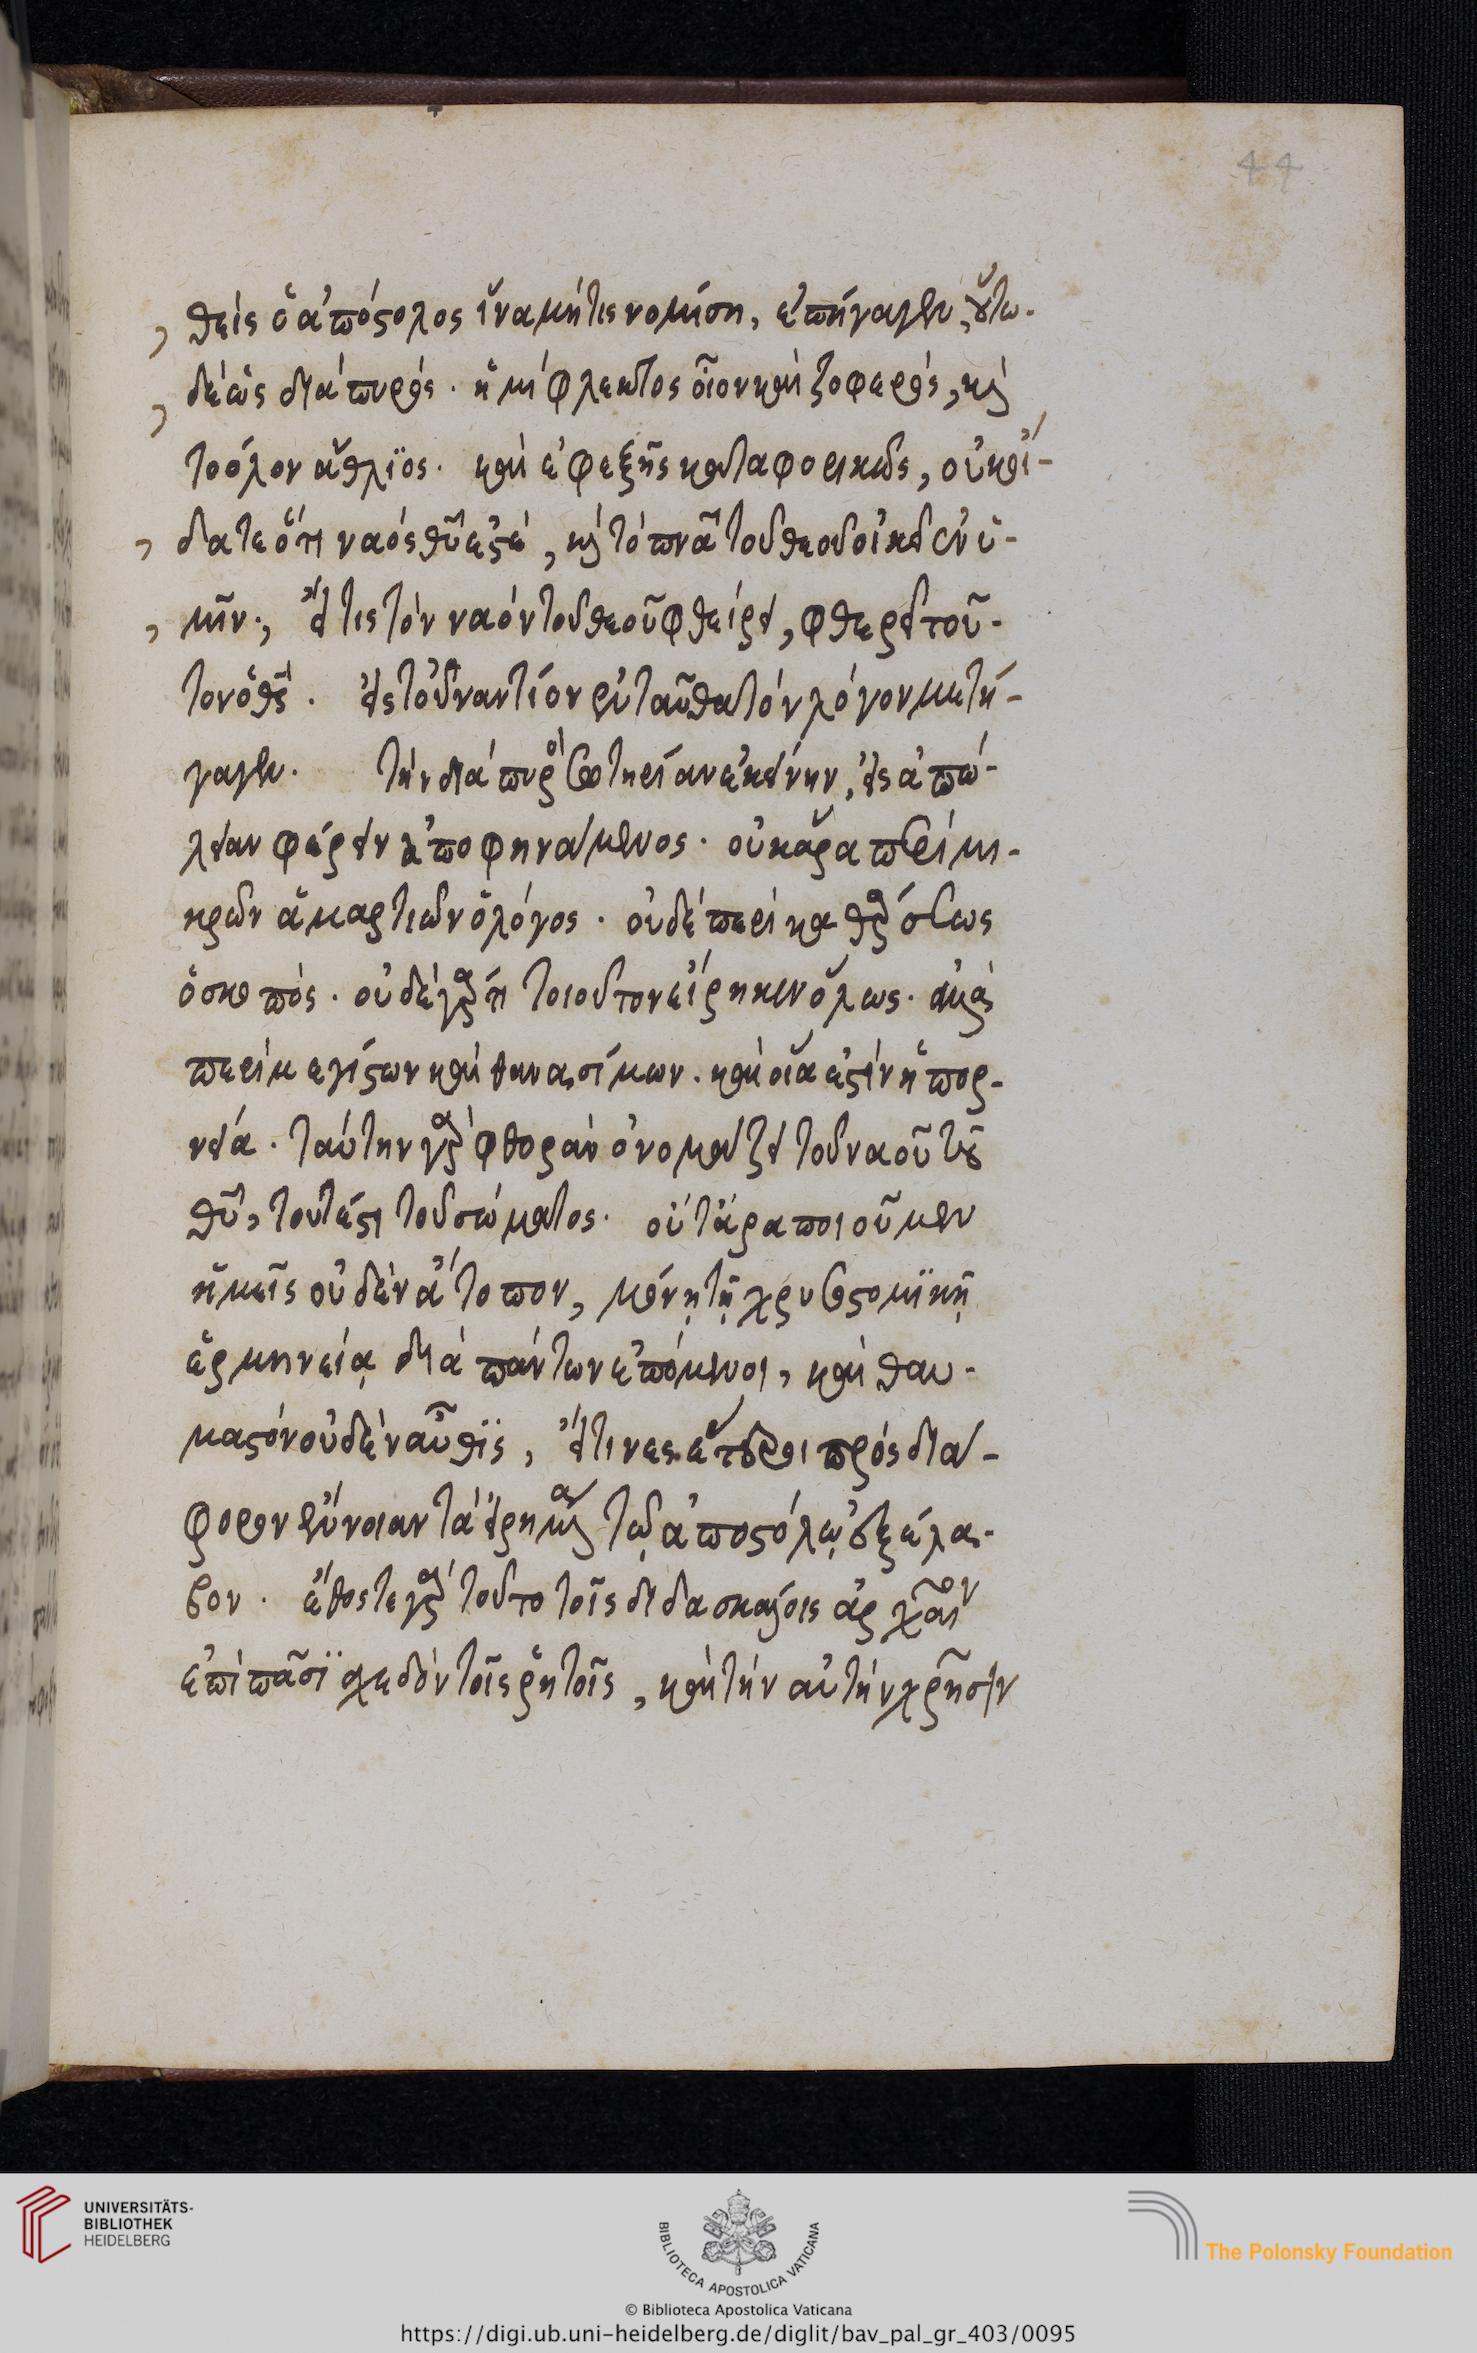 44
θεὶς ὁ ἀπόστολος ἵνα μή τις νομίση, ἐπήγαγεν, οὕτω
δὲ ὡς διὰ πυρός. ἡμίφλεκτος οἷον καὶ ζοφερός, κ(αὶ)
τοόλον ἄθλϊος. καὶ ἐφεξῆς καταφορικῶς, οὐκ οἴ-
δατε ὅτι ναός θ(εο)ῦ ἐστέ, κ(αὶ) τὸ πν(εῦμ)α τοῦ θεοῦ οἰκεῖ ἐν ὑ-
μῖν., εἴ τις τὸν ναὸν τοῦ θεοῦ φθείρει, φθερεῖ τοῦ-
τον ὁ θ(εό)ς. εἰς τοὐναντίον ἐνταῦθα τὸν λόγον μετή-
γαγεν. τὴν διὰ πυρὸς σωτηρίαν ἐκείνην, εἰς ἀπώ-
λειαν φέρειν ἀποφηνάμενος. οὐκ ἄρα περὶ μι-
κρῶν ἁμαρτιῶν ὁ λόγος. οὐδὲ περὶ καθάρσεως
ὁ σκοπός. οὐδὲ γάρ τι τοιοῦτον εἴρηκεν ὅλως. ἀλλὰ
περὶ μεγίστων καὶ θανασίμων. καὶ οἷα ἐστὶν ἡ πορ-
νεία. ταύτην γὰρ φθορὰν ὀνομάζει τοῦ ναοῦ τοῦ
θ(εο)ῦ, τουτέστι τοῦ σώματος. οὔτ' ἄρα ποιοῦμεν
ἡμεῖς οὐδὲν ἄτοπον, μόνῃ τῇ χρυσοστομϊκῇ
ἑρμηνείᾳ διὰ πάντων ἑπόμενοι, καὶ θαυ-
μαστὸν οὐδὲν αὖθϊς, εἴ τινες ἕτεροι πρὸς διά-
φορον ἔννοιαν τὰ εἰρημένα τῷ ἀποστόλῳ ἐξέλα-
βον. ἔθος τε γὰρ τοῦτο τοῖς διδασκάλοις ἀρχαῖον
ἐπὶ πᾶσϊ σχεδὸν τοῖς ῥητοῖς, καὶ τὴν αὐτὴν χρῆσιν
UNIVERSITÄTS-
BIBLIOTHEK
HEIDELBERG
BIBLIOTECA APOSTOLICA VATICANA
The Polonsky Foundation
© Biblioteca Apostolica Vaticana
https://digi.ub.uni-heidelberg.de/diglit/bav_pal_gr_403/0095